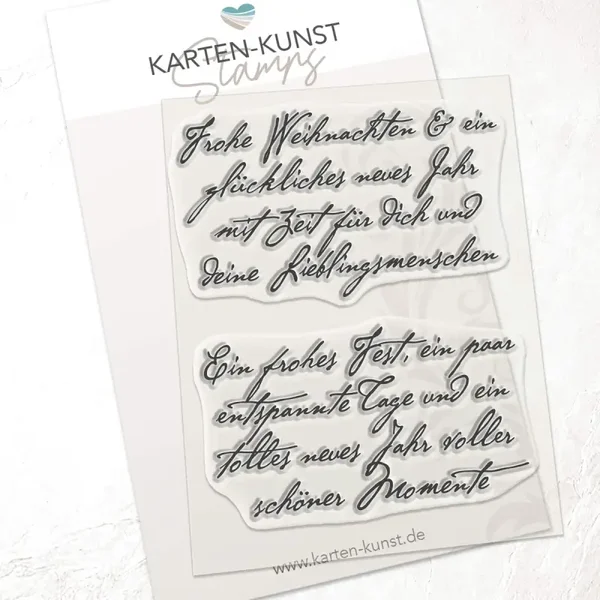 KARTEN-KUNST
Stamps
Frohe Weihnachten & ein
glückliches neues Jahr
mit Zeit für dich und
deine Lieblingsmenschen
Ein frohes Fest, ein paar
entspannte Tage und ein
tolles neues Jahr voller
schöner Momente
www.karten-kunst.de